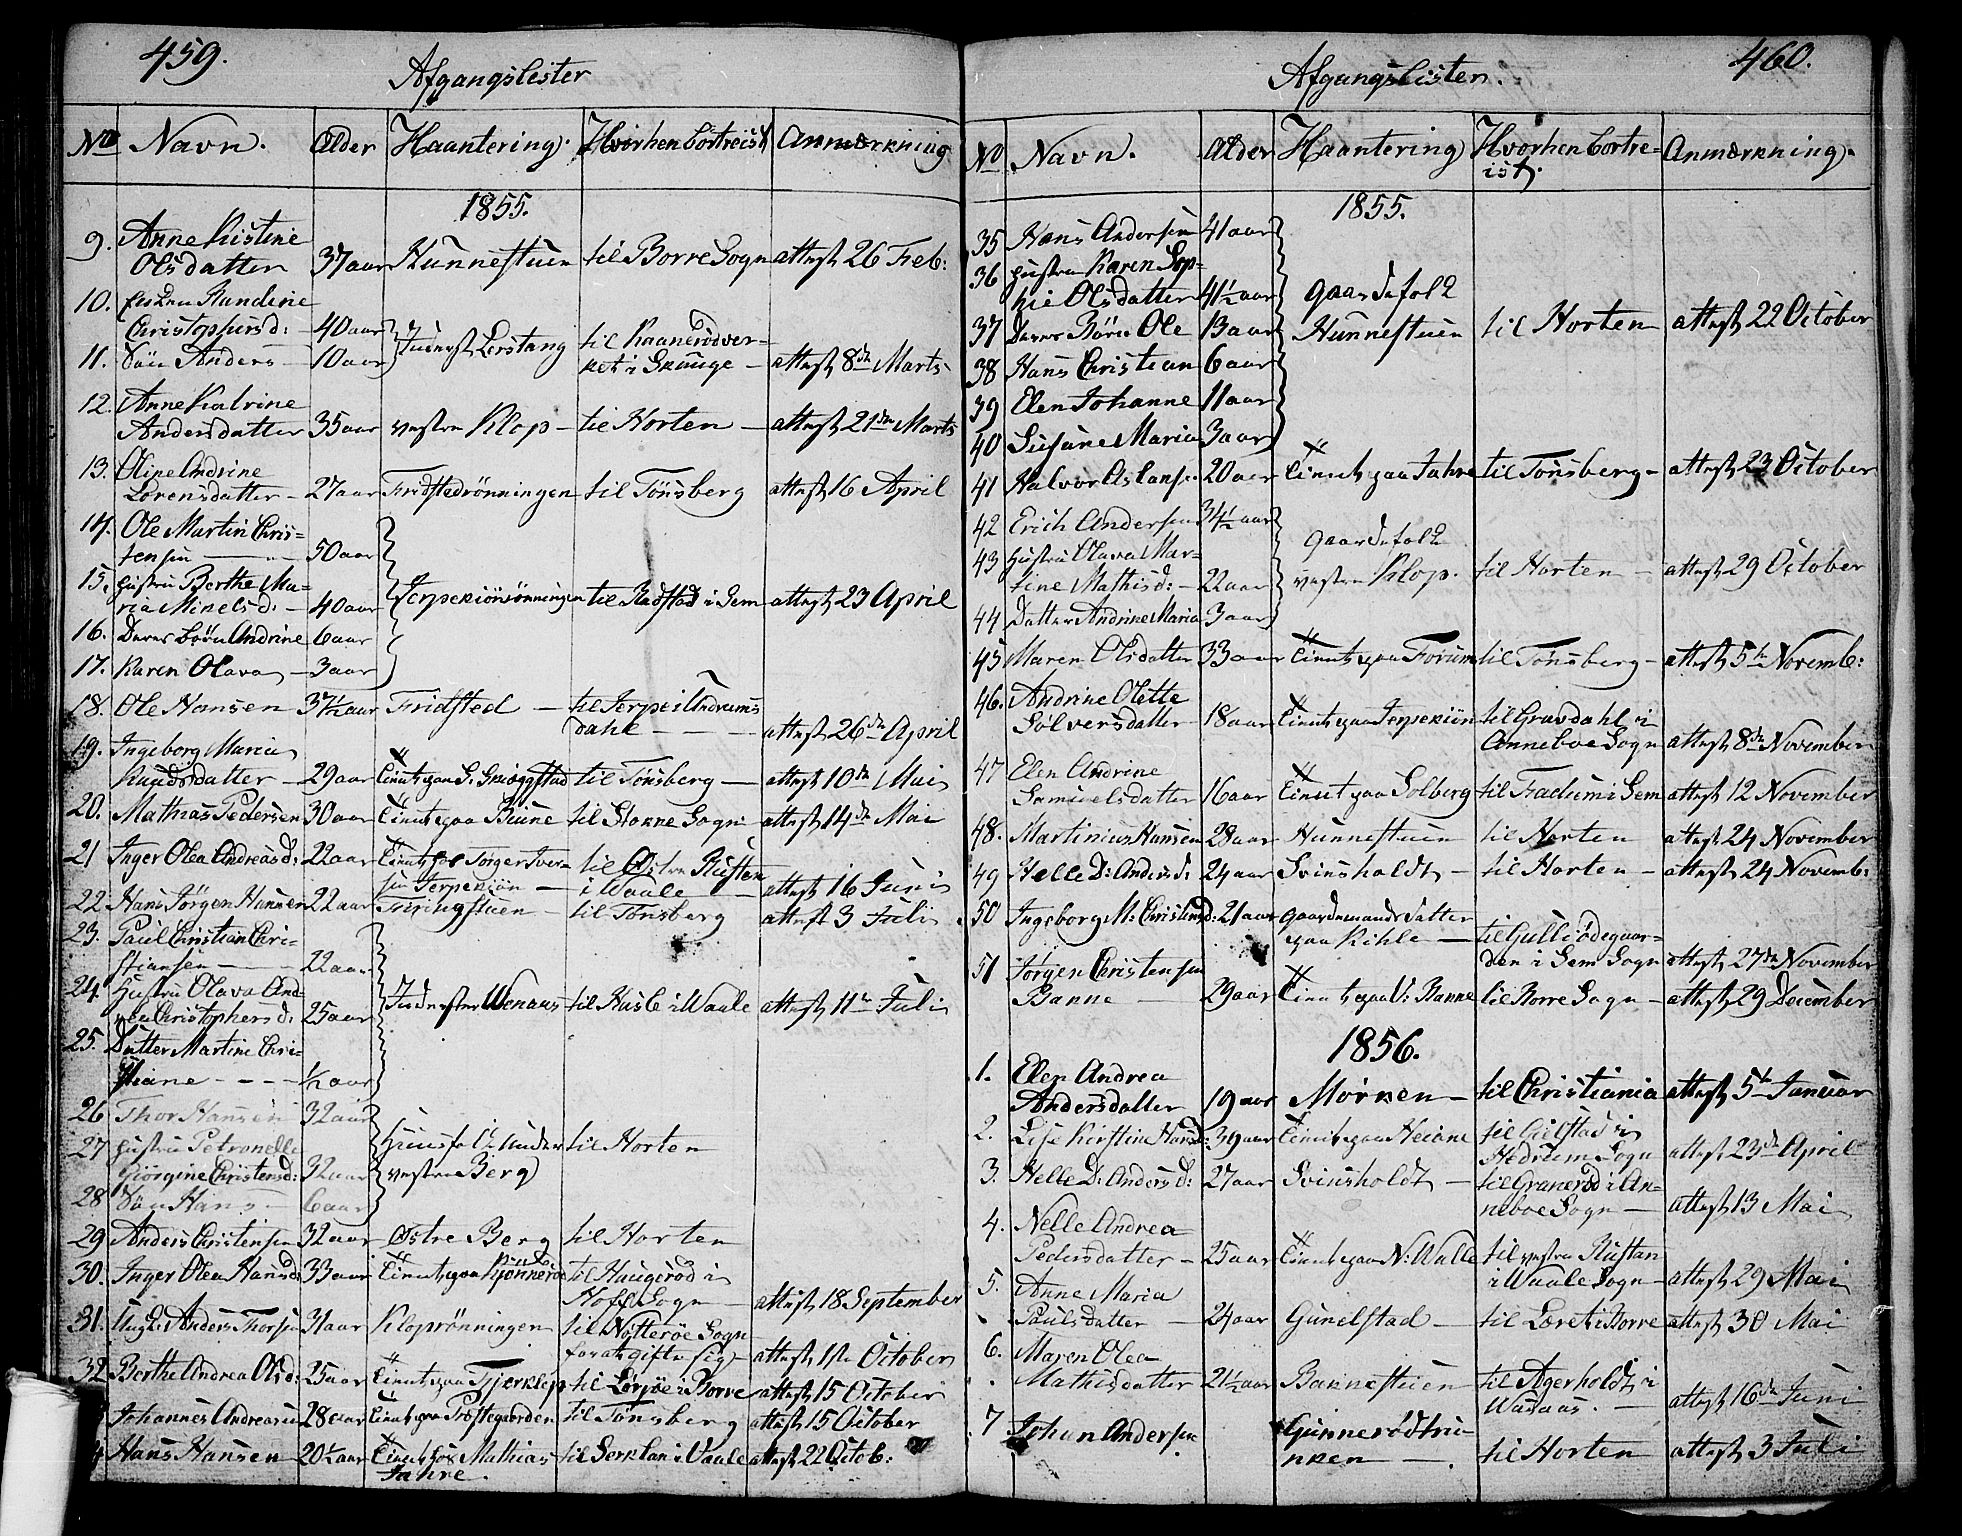 459.
Afgangslister
No Navn. Alder Haantering. Hvorhen bortreist Anmærkning
1855.
9. Anne Kistine
Olsdatter 37 aar Hunnestuen til Borre Sogn attest 26 Feb:
10. Enken Randine
Christophersd: 40 aar
11. Sön Anders 10 aar Lerstang til Raanerödver-
ket i Skouge attest 8de Marts
12. Anne Katrine
Andersdatter 35 aar vestre Klop til Horten attest 21de Marts
13. Oline Andrine
Lorensdatter 27 aar Fridstedrönningen til Tönsberg attest 16 April
14. Ole Martin Chris-
tensen 50 aar
15. Hustru Berthe Ma-
ria 40 aar til i Sem attest 23 April
16. Deres börn Andrine 6 aar
17. Karen Olava 3 aar
18. Ole Hansen 37½ aar Fridsted til Jerpe i Undrums
dahle attest 26de April
19. Ingeborg Maria
Knudsdatter 29 aar til Tönsberg attest 10de Mai
20. Mathias Pedersen 30 aar Tieniut paa Biune til Stokke Sogn attest 14de Mai
21 Inger Olea Andreasd: 22 aar Tieniut hos Torger Iver-
sen Jerpekiön til Østre Rusten
i Vaale attest 16 Juni
22. Hans Jörgen Hansen 22 aar til Tönsberg attest 3 Juli
23. Paul Christian Chri-
stiansen 22 aar
24. Hustru Olava And-
rea Christophersd: 25 aar Wenaas til Hasle i Vaale attest 11te Juli
25. Datter Martine Chri-
stiane ½ aar
26 Thor Hansen 32 aar
27 Hustru Petronelle
Giörgine Christensd: 32 aar Huusfolk under til Horten
vestre Berg
28 Sön Hans 6 aar
29 Anders Christensen 32 aar Østre Berg til Horten
30. Inger Olea Hansd: 33 aar Tieniut paa Kjönneröe til Haugeröd i
Hoff Sogn attest 18 September
31. Ungk: Anders Thorsen 31 aar Kloprönningen til Nötteröe Sogn
for at gifte sig attest 1ste October
32. Berthe Andrea Olsd: 25 aar Tieniut paa Fjerklep til i Borre attest 15 October
Johannes Andreasen 28 aar Tieniut paa Præstegaarden til Tönsberg attest 15 October
4 Hans Hansen 20½ aar Tieniut hos Mathias til i Vaale attest 22 Octob:
Jahre.
460.
Afgangslisten.
No Navn. Alder Haantering Hvorhen bortre-
ist. Anmærkning.
1855.
35 Hans Andersen 41 aar
36 Hustru Karen Sop-
hie Olsdatter 41½ aar Gaardsfolk
37 Deres Börn Ole 13 aar Hunnestuen til Horten attest 22 October
38 Hans Christian 6 aar
39 Elen Johanne 11 aar
40 Susane Maria 3 aar
41 Halvor Aslansen 20 aar Tieniut paa Jahre til Tönsberg attest 23 October
42 Erich Andersen 34½ aar
Gaardsfolk
43 Hustru Olava Mar-
tine Mathisd: 22 aar vestre Klop. til Horten attest 29 October
44 Datter Andrine Maria 3 aar
45 Maren Olsdatter 33 aar Tieniut paa Forum til Tönsberg attest 5te Novemb:
46. Andrine Olette
Sölversdatter 18 aar Tieniut paa Jerpekiön til Gravdahl i
Anneboe Sogn attest 8de November
47 Elen Andrine
Samuelsdatter 16 aar Tieniut paa Solberg til Fadum i Sem attest 12 November
48. Martinius Hansen 28 aar Hunnestuen til Horten attest 24 November
49 Helle D: Andersd: 24 aar Svinsholdt til Horten attest 24 Novemb:
50 Ingeborg M: Christensd: 21 aar Gaardmands datter
paa Kihle til Gulli ödegaar-
den i Sem Sogn attest 27de November
51 Jörgen Christensen
Banne 29 aar Tieniut paa V: Banne til Borre Sogn attest 29 December
1856.
1. Elen Andrea
Andersdatter 19 aar Mörken til Christiania attest 5te Januar
2. Lise Kirstine Hansd: 39 aar Tieniut paa Heiane til Gulstad i
Hedrum Sogn attest 23de April
3. Helle D: Andersd: 27 aar Svinsholdt til Graneröd i An-
neboe Sogn attest 13 Mai
4. Nelle Andrea
Pedersdatter 25 aar Tieniut paa N: Walle til vestre Rustan
i Waale Sogn attest 29 Mai
5. Anne Maria
Paulsdatter 24 aar Gunelstad til i Borre attest 30 Mai
6. Maren Olea
Mathisdatter 21½ aar Bannestuen til Agerholdt i
Wasaas. attest 16de Juni
7 Johan Andersen Gunnerödtri-
nken til Horten attest 3 Juli